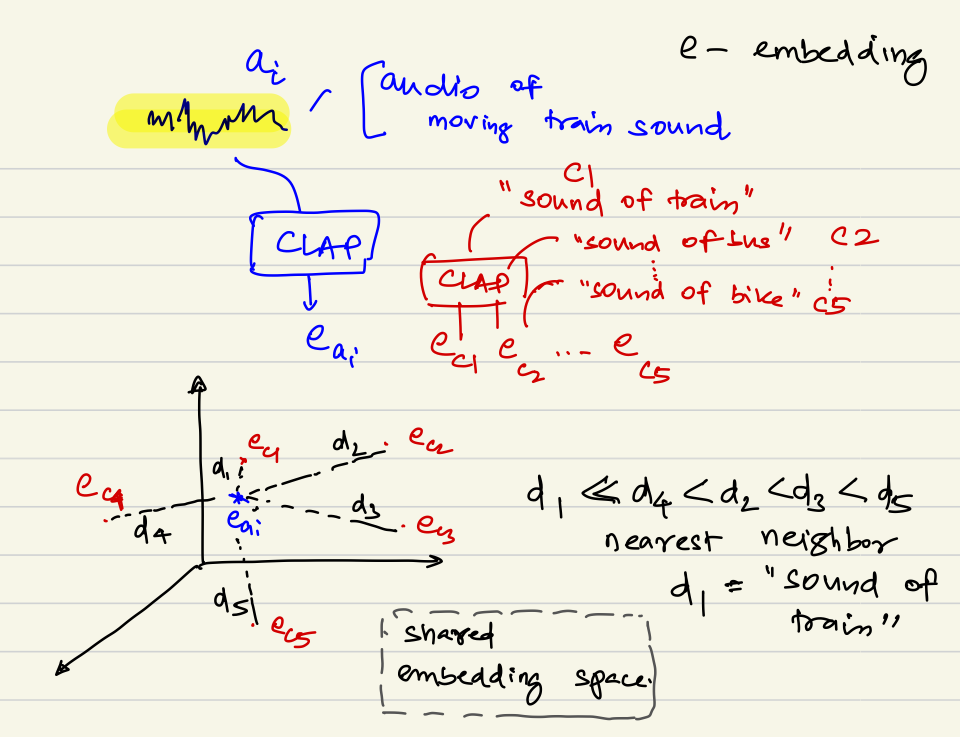 e - embedding
a_i
[audio of
moving train sound
C1
"sound of train"
CLAP
"sound of bus" C2
CLAP
"sound of bike" C5
e_ai
e_c1 e_c2 ... e_c5
d_1 e_c1
d_2 e_c2
e_c4
d_4
e_ai
d_3 e_c3
d_5
e_c5
d_1 ≪ d_4 < d_2 < d_3 < d_5
nearest neighbor
d_1 = "sound of
train"
shared
embedding space.